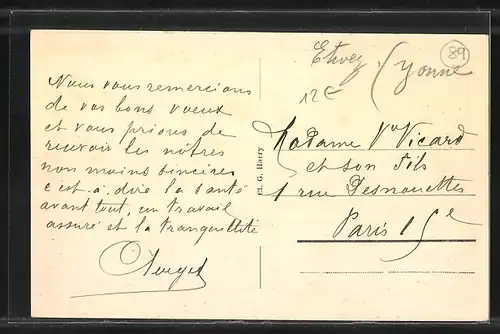 Nous vous remercions
de vos bons voeux
et vous prions de
recevoir les nôtres
non moins sincères
c'est à dire la santé
avant tout, un travail
assuré et la tranquillité
Cl. G. Harry
(Yonne
89
12€
Madame Vve Vicard
et son fils
1 rue Desnouettes
Paris 15e